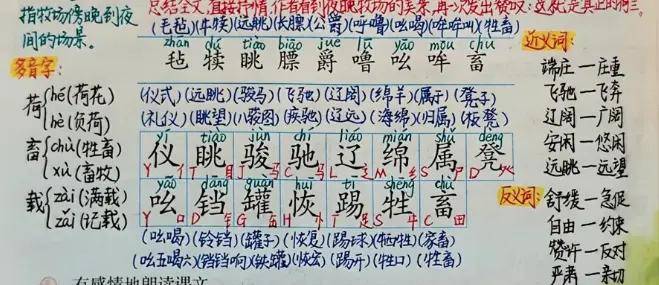 总结全文,直接抒情,作者看到夜晚牧场的美景,再一次发出赞叹:这就是真正的荷兰。
指牧场傍晚到夜
间的场景。
(毛毡)(牛犊)(远眺)(长膘)(公爵)(呼噜)(吆喝)(哞哞叫)(牲畜)
zhān dú tiào biāo jué lū yāo mōu chù
毡 犊 眺 膘 爵 噜 吆 哞 畜
多音字:
荷 hé(荷花)
hè(负荷)
畜 chù(牲畜)
xù(畜牧)
载 zài(满载)
zǎi(记载)
(仪式)(远眺)(骏马)(飞驰)(辽阔)(绵羊)(属于)(凳子)
(礼仪)(眺望)(八骏图)(疾驰)(辽远)(海绵)(归属)(板凳)
yí tiào jùn chí liáo mián shǔ dèng
仪 眺 骏 驰 辽 绵 属 凳
yāo dāng guàn huī tī shēng chù
吆 铛 罐 恢 踢 牲 畜
(吆喝)(铃铛)(罐子)(恢复)(踢球)(牺牲)(家畜)
(吆五喝六)(铛铛响)(铁罐)(恢宏)(踢开)(牲口)(牲畜)
近义词:
端庄—庄重
飞驰—飞奔
辽阔—广阔
安闲—悠闲
远眺—远望
反义词:
舒缓—急促
自由—约束
赞许—反对
严肃—亲切
有感情地朗读课文